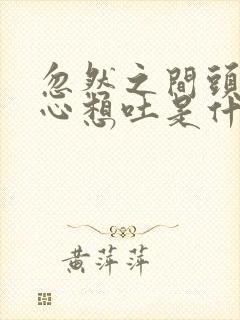 忽然之間頭
心想吐是什
黃萍萍